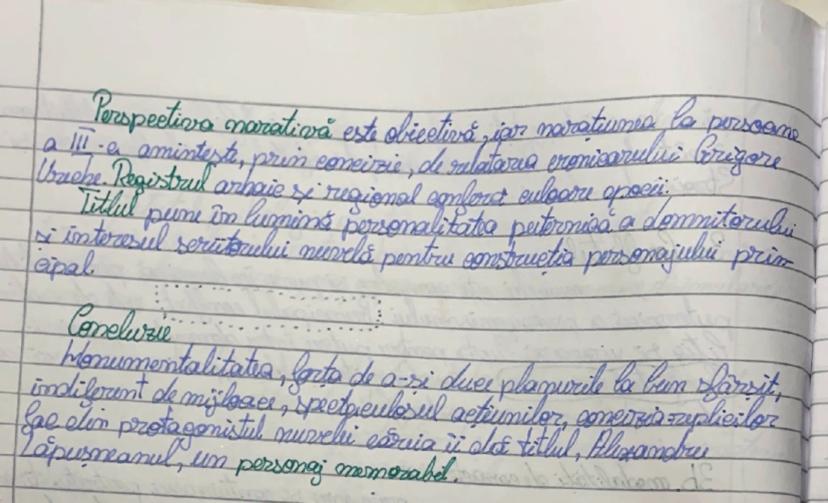 Perspectiva narativă este obiectivă, iar narațiunea la persoana
a III-a amintește, prin concizie, de relatarea cronicarului Grigore
Ureche. Registrul arhaic și regional conferă culoare epocii.
Titlul pune în lumină personalitatea puternică a domnitorului
și interesul scriitorului nuvelă pentru construcția personajului prin
cipal.
Concluzie
Monumentalitatea, forța de a-și duce planurile la bun sfârșit,
indiferent de mijloace, spectaculosul acțiunilor, concizia replicilor
fac din protagonistul nuvelei căruia îi dă titlul, Alexandru
Lăpușneanul, un personaj memorabil.